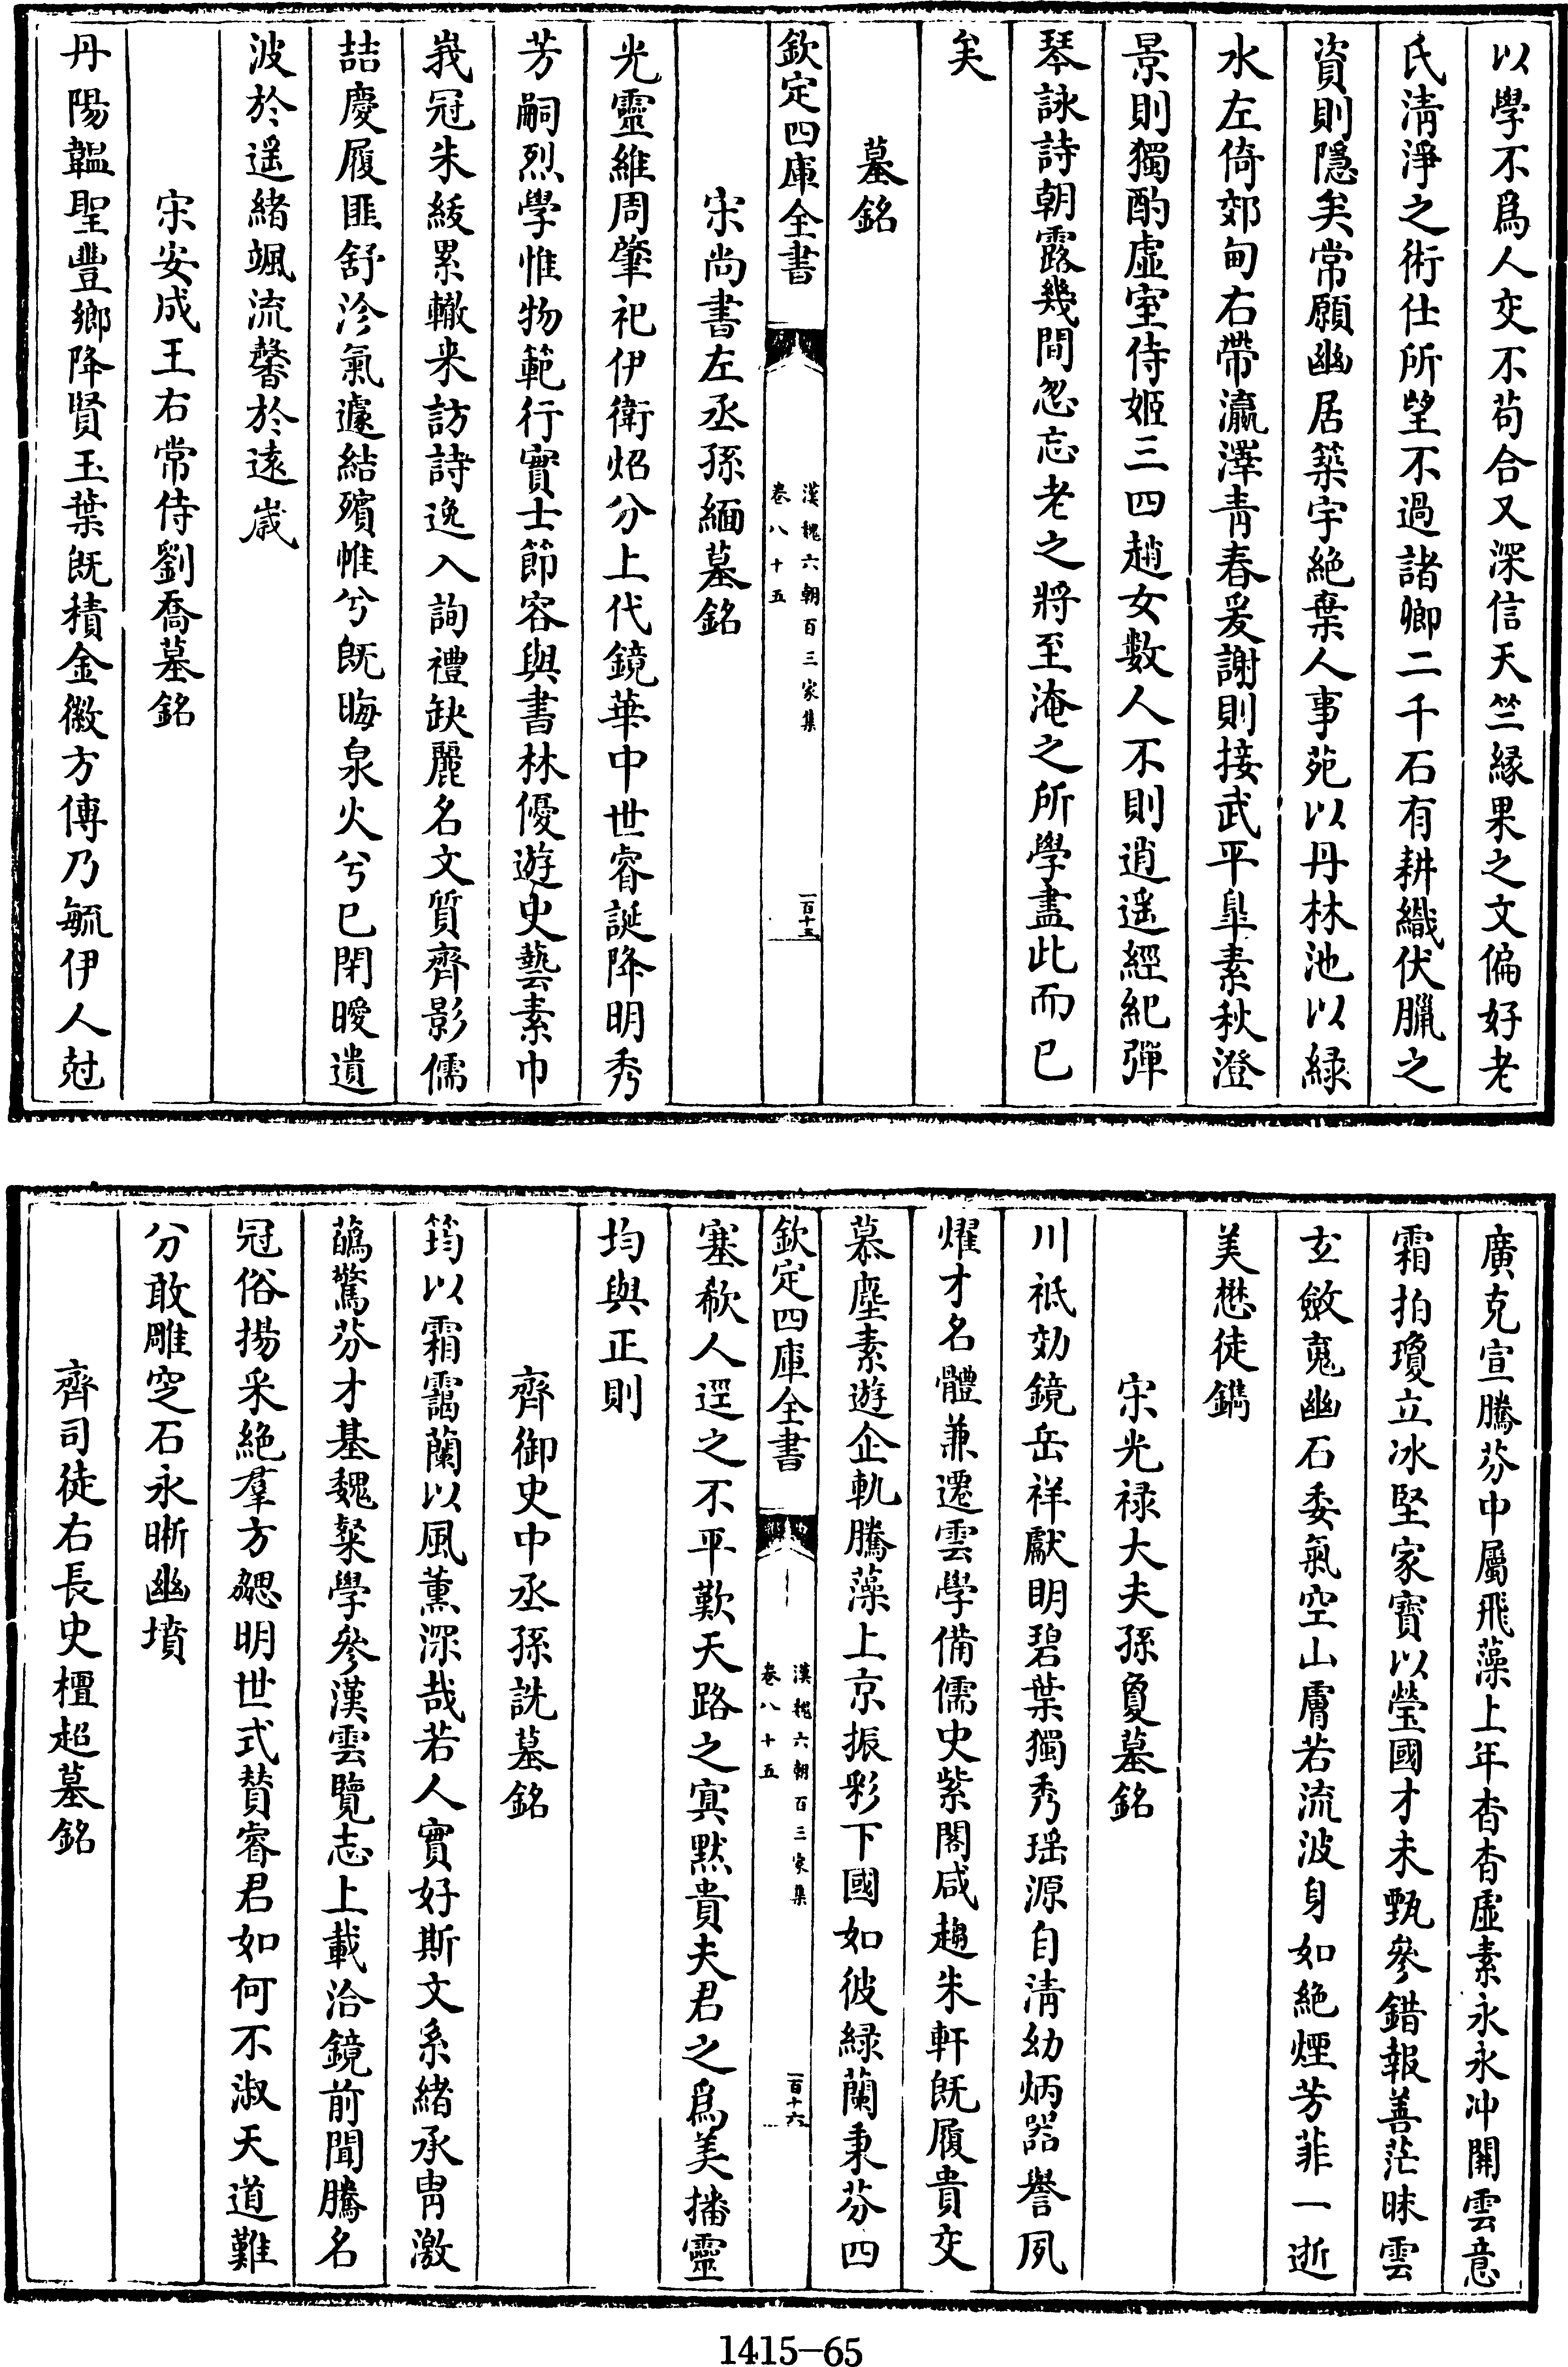 以學不爲人交不茍合又深信天竺縁果之文偏好老
氏淸淨之術仕所望不過諸卿二千石有耕織伏臘之
資則隱矣常願幽居築宇絶棄人事苑以丹林池以緑
水左倚郊甸右帶瀛澤靑春爰謝則接武平臯素秋澄
景則獨酌虛室侍姬三四趙女數人不則逍遥經紀彈
琴詠詩朝露幾間忽忘老之將至淹之所學盡此而已
矣
墓銘
欽定四庫全書
漢魏六朝百三家集
卷八十五
一百十五
宋尚書左丞孫緬墓銘
光靈維周肇祀伊衛炤分上代鏡華中世睿誕降明秀
芳嗣烈學惟物範行實士節容與書林優遊史藝素巾
峩冠朱紱累轍来訪詩逸入詢禮缺麗名文質齊影儒
喆慶履匪舒沴氣遽結殯帷兮旣晦泉火兮已閉曖遺
波於遥緒颯流馨於遠歲
宋安成王右常侍劉喬墓銘
丹陽韞聖豐鄉降賢玉葉旣積金徽方傳乃毓伊人尅
廣克宣騰芬中屬飛藻上年杳杳虛素永永冲開雲意
霜拍瓊立冰堅家寶以瑩國才未甄參錯報善茫昧雲
玄斂䰟幽石委氣空山膚若流波身如絶煙芳菲一逝
美懋徒鐫
宋光禄大夫孫夐墓銘
川祇効鏡岳祥獻明碧葉獨秀瑶源自清幼炳器譽夙
燿才名體兼遷雲學備儒史紫閣咸趨朱軒旣履貴交
慕塵素遊企軌騰藻上京振彩下國如彼緑蘭秉芬四
欽定四庫全書
漢魏六朝百三家集
卷八十五
一百十六
塞欷人逕之不平歎天路之寘默貴夫君之爲美播靈
均與正則
齊御史中丞孫詵墓銘
筠以霜靄蘭以風薫深哉若人實好斯文系緒承冑激
藹驚芬才基魏粲學參漢雲覽志上載洽鏡前聞騰名
冠俗揚采絶羣方勰明世式賛睿君如何不淑天道難
分敢雕空石永晰幽墳
齊司徒右長史檀超墓銘
1415-65